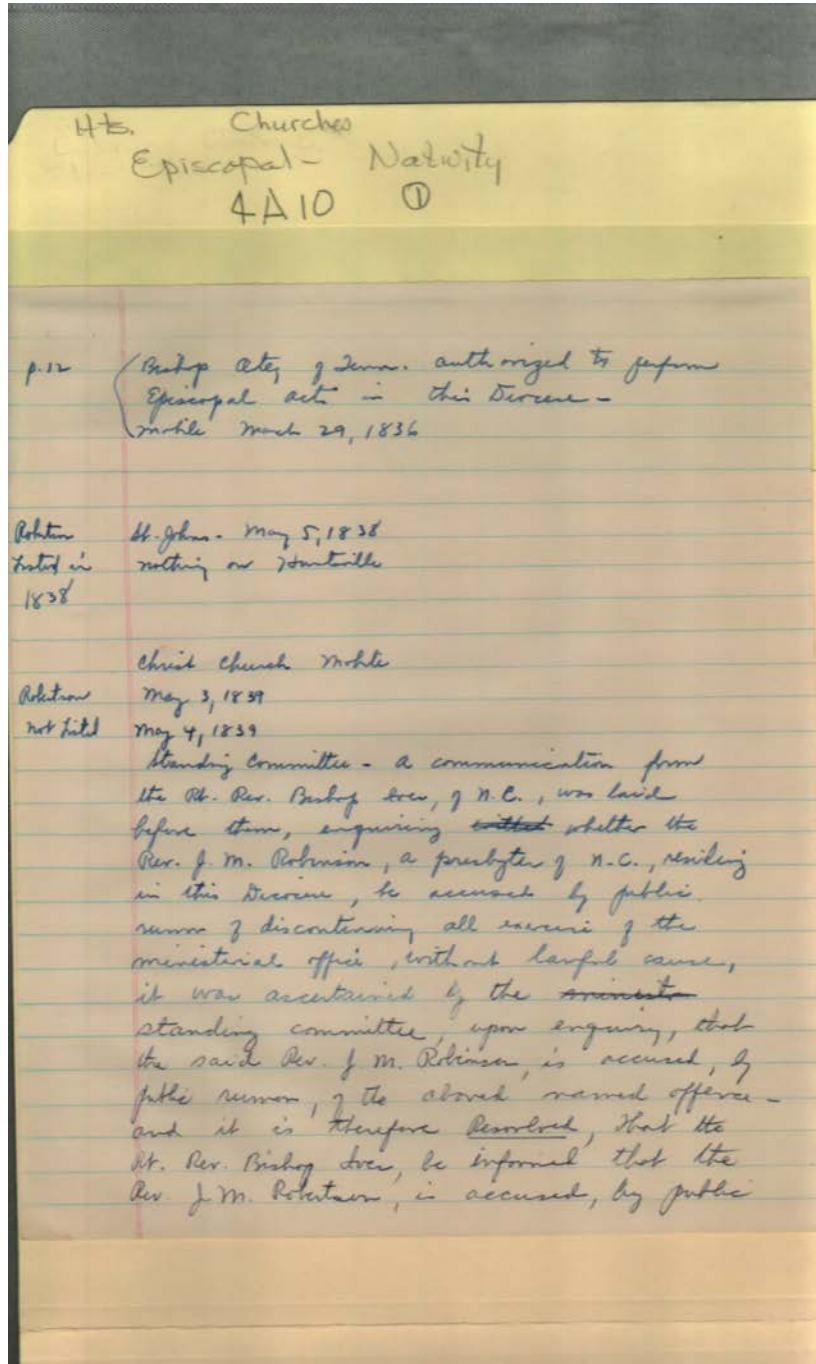 Hts. Churches
Episcopal - Nativity
4A10 ①
p.12 Bishop Otey of Tenn. authorized to perform
Episcopal acts in this Diocese -
Mobile March 29, 1836
Robertson St. Johns - May 5, 1838
Listed in nothing on Huntsville
1838
Christ Church Mobile
Robertson May 3, 1839
not listed May 4, 1839
Standing Committee - a communication from
the Rt. Rev. Bishop Ives, of N.C., was laid
before them, enquiring whether the
Rev. J. M. Robinson, a presbyter of N.C., residing
in this Diocese, be accused by public
rumor of discontinuing all exercise of the
ministerial office, without lawful cause,
it was ascertained by the
standing committee, upon enquiry, that
the said Rev. J. M. Robinson, is accused, by
public rumor, of the aboved named offence -
and it is therefore Resolved, that the
Rt. Rev. Bishop Ives, be informed that the
Rev. J. M. Robertson, is accused, by public